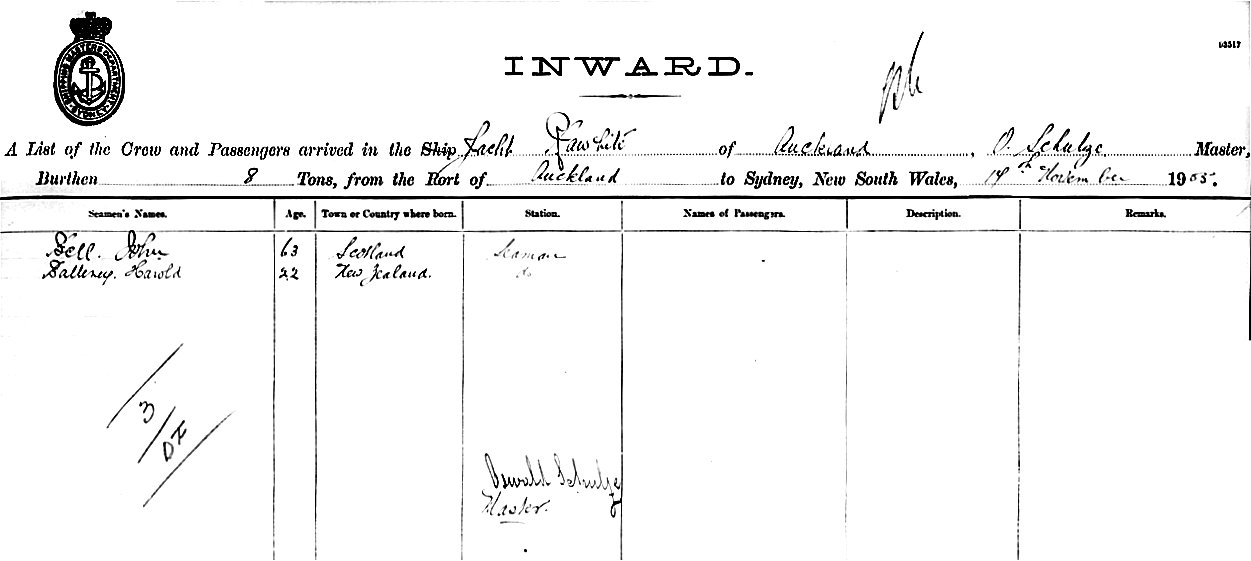 SHIPPING MASTERS DEPARTMENT SYDNEY
63517
INWARD.
A List of the Crew and Passengers arrived in the Ship Yacht Rawhiti of Auckland, O. Schulze Master,
Burthen 8 Tons, from the Port of Auckland to Sydney, New South Wales, 14th November 1905.
Seamen's Names. Age. Town or Country where born. Station. Names of Passengers. Description. Remarks.
Bell. John 63 Scotland Seaman
Harold 22 New Zealand. do
3
Oswald Schulze
Master.